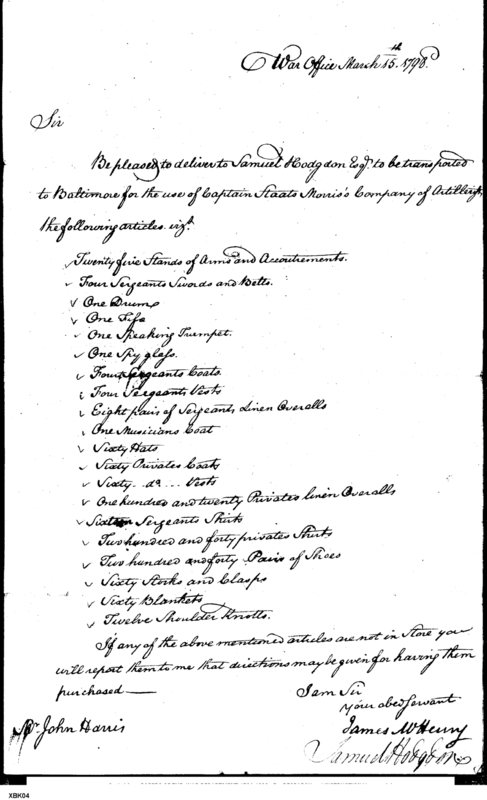 War Office March 15th. 1798.
Sir
Be pleased to deliver to Samuel Hodgdon Esqr. to be transported
to Baltimore for the use of Captain Staats Morris's Company of Artillery
the following articles. vizt.
Twenty five Stands of Arms and Accoutrements.
Four Sergeants Swords and Belts.
One Drum
One Fife
One Speaking Trumpet.
One Spy glass.
Four Sergeants Coats
Four Sergeants Vests
Eight pairs of Sergeants Linen Overalls
One Musicians Coat
Sixty Hats
Sixty Privates Coats
Sixty .. do ... Vests
One hundred and twenty Privates linen Overalls
Sixteen Sergeants Shirts
Two hundred and forty privates Shirts
Two hundred and forty Pairs of Shoes
Sixty Stocks and Clasps
Sixty Blankets
Twelve Shoulder Knotts.
If any of the above mentioned articles are not in Store you
will report them to me that directions may be given for having them
purchased —
I am Sir
your obed Servant
James McHenry
Mr. John Harris
Samuel Hodgdon
XBK04